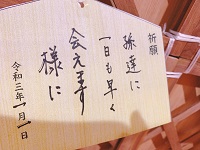 祈願
孫達に
一日も早く
会えます
様に
令和三年一月一日